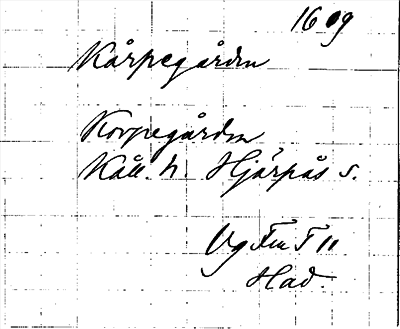 1609
Kårpegården
Korpegården
Kåll. h. Hjärpås s.
Vg Fm T 11
Had.